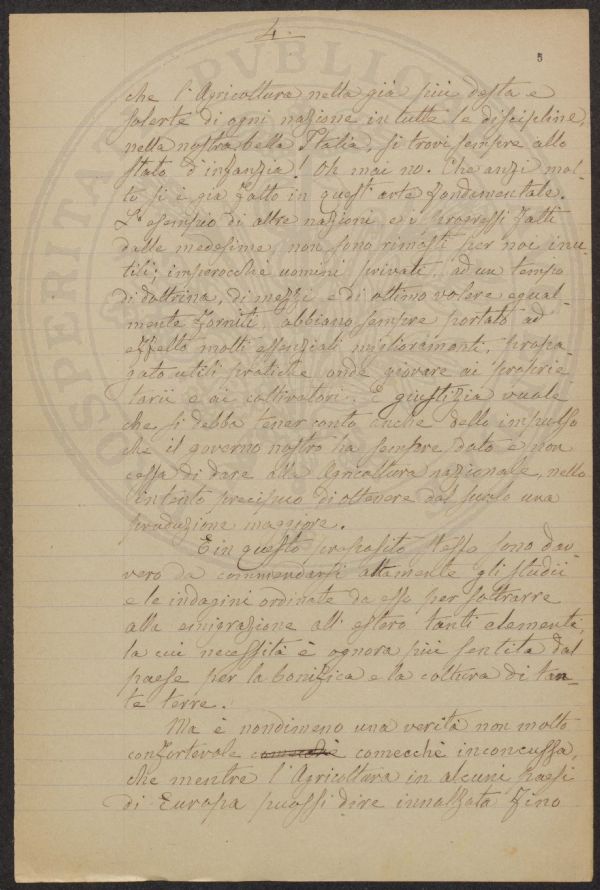 4.
5
che l'Agricoltura nella già più desta e
solerte di ogni nazione in tutte le discipline,
nella nostra bella Italia, si trovi sempre allo
stato d'infanzia! Oh mai no. Che anzi mol-
to si è già fatto in quest'arte fondamentale.
L'esempio di altre nazioni, e i progressi fatti
dalle medesime, non sono rimasti per noi inu-
tili; imperocchè uomini privati, ad un tempo
di dottrina, di mezzi e di ottimo volere egual-
mente forniti, abbiano sempre portato ad
effetto molti essenziali miglioramenti, propa-
gato utili pratiche onde giovare ai proprie-
tarii e ai coltivatori. E giustizia vuole
che si debba tener conto anche dello impulso
che il governo nostro ha sempre dato e non
cessa di dare alla Agricoltura nazionale, nello
intento precipuo di ottenere dal suolo una
produzione maggiore.
E in questo proposito stesso sono dav-
vero da commendarsi altamente gli studii
e le indagini ordinate da esso per sottrarre
alla emigrazione all'estero tanti elementi,
la cui necessità è ognora più sentita dal
paese per la bonifica e la coltura di tan-
te terre.
Ma è nondimeno una verità non molto
confortevole comecchè inconcussa,
che mentre l'Agricoltura in alcuni paesi
di Europa puossi dire innalzata fino